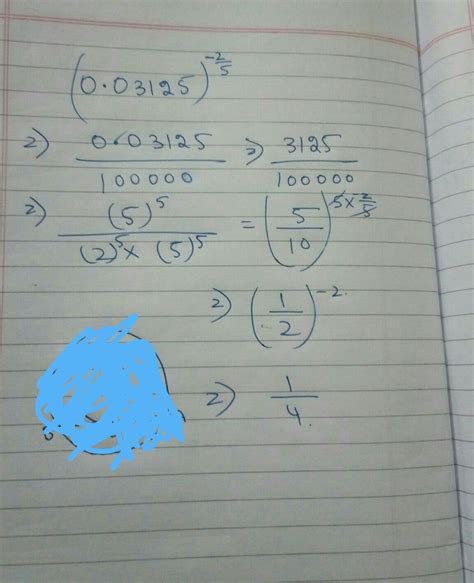 (0.03125)^{-2/5}
2) 0.03125/100000 2) 3125/100000
2) (5)^5/(2)^5x (5)^5 = (5/10)^{5x2/5}
2) (1/2)^{-2.}
2) 1/4.